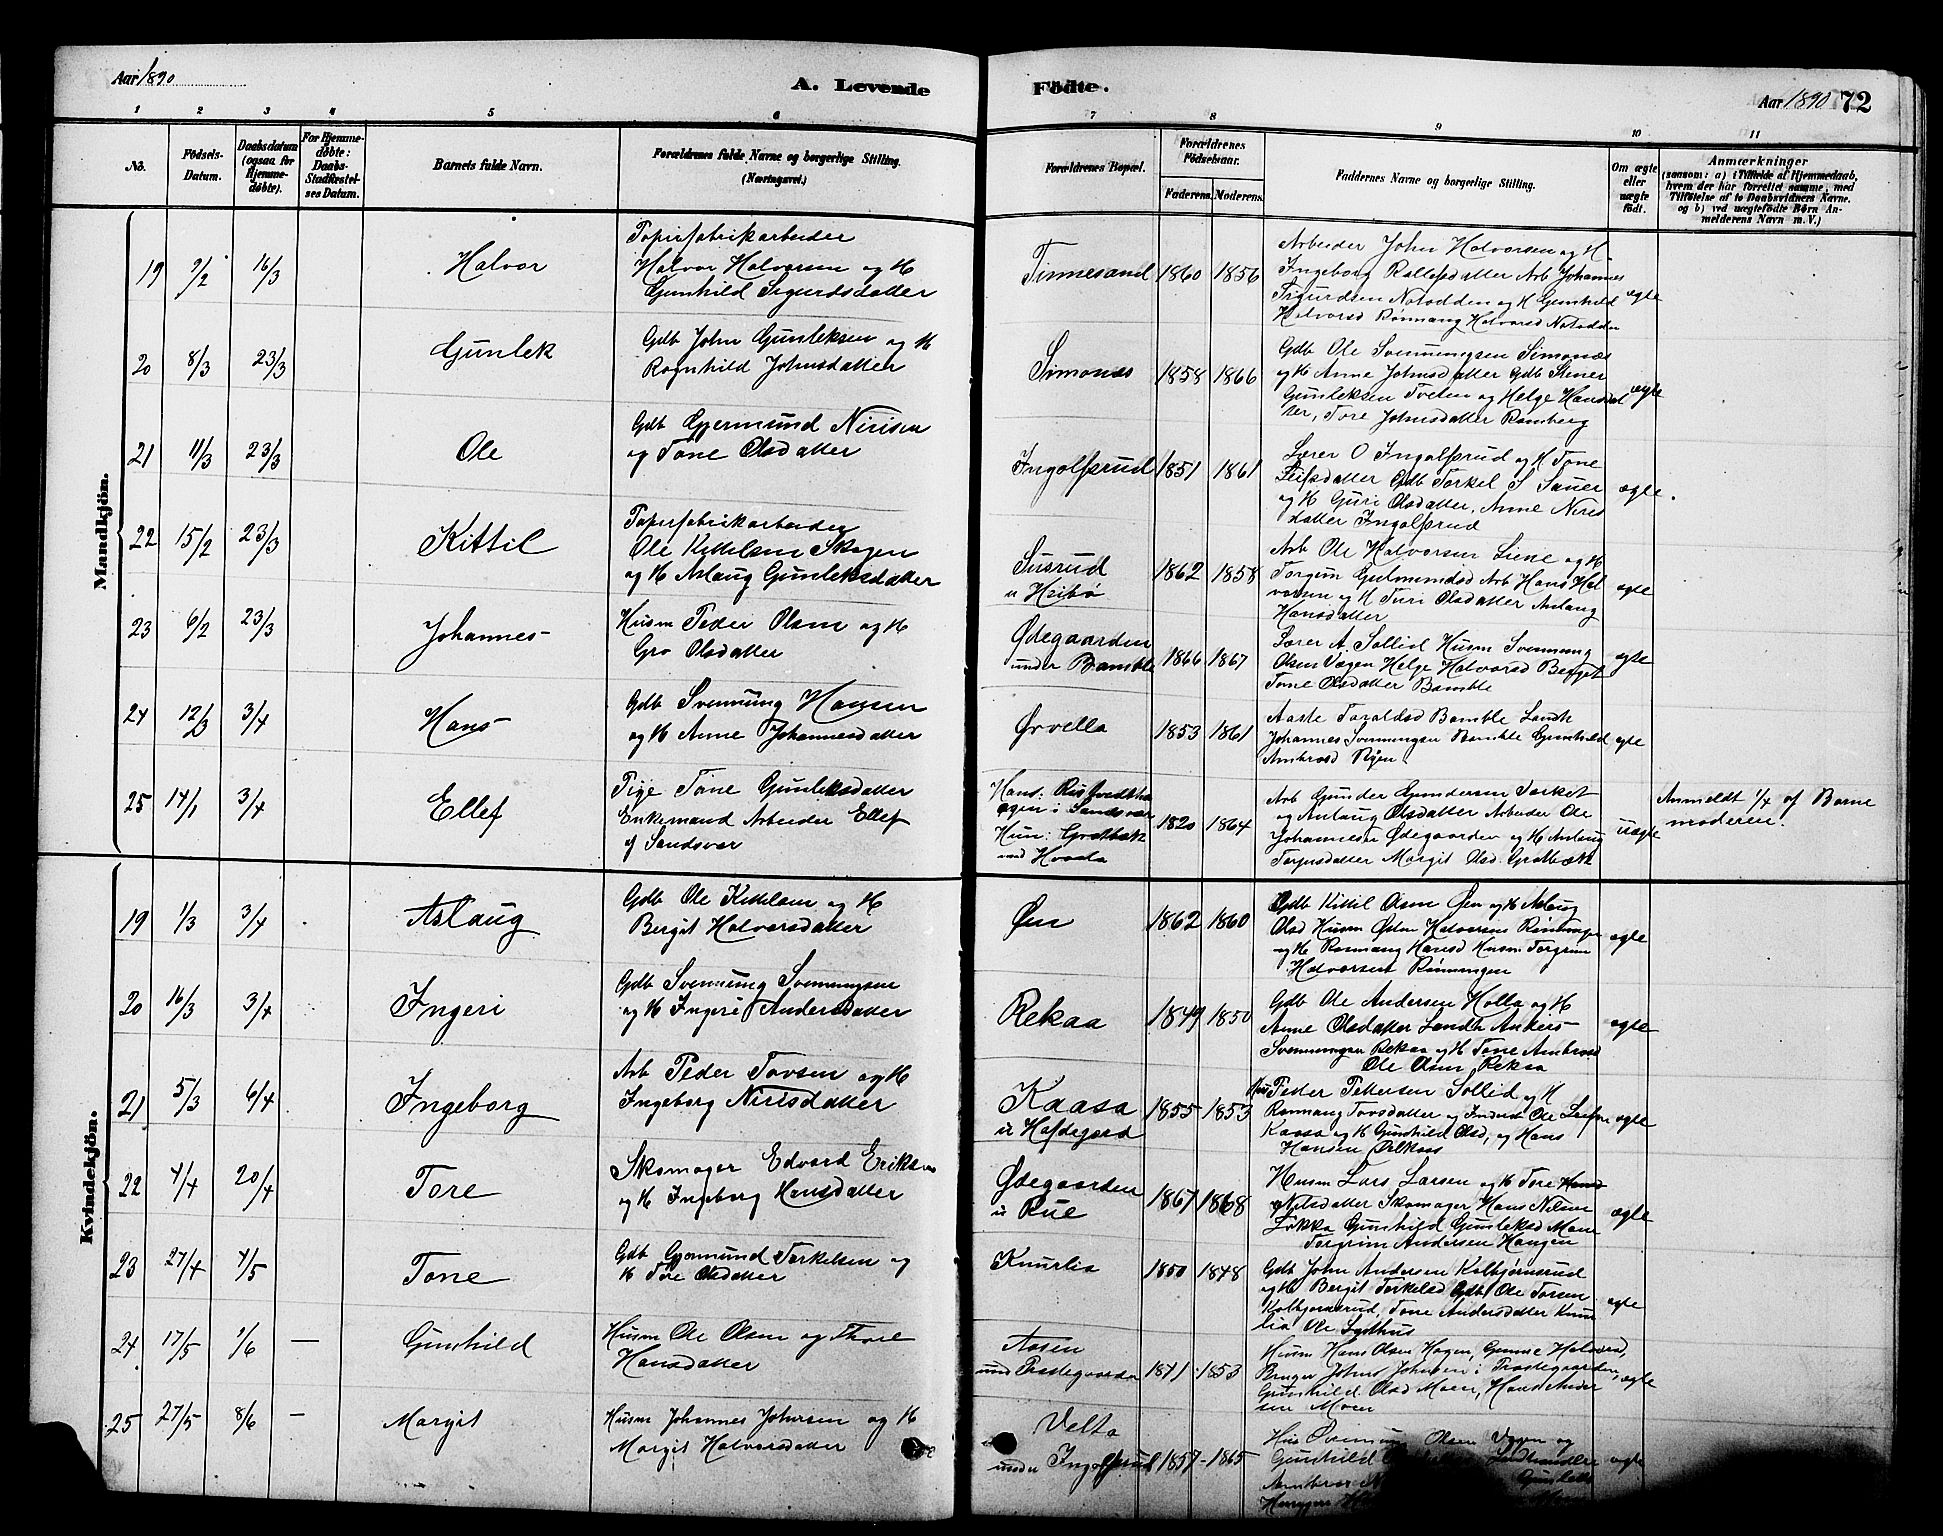 Aar 1890
A. Levende
Födte.
Aar 1890 72
1 2 3 4 5 6 7 8 9 10 11
No.
Födsels-
Datum.
Daabsdatum
(ogsaa for
Hjemme-
døbte).
For Hjemme-
døbte:
Daabs-
Stadfæstel-
ses Datum.
Barnets fulde Navn.
Forældrenes fulde Navne og borgerlige Stilling.
(Næringsvei.)
Forældrenes Bopæl.
Forældrenes
Födselsaar.
Faderens.
Moderens.
Faddernes Navne og borgerlige Stilling.
Om ægte
eller
uægte
födt.
Anmærkninger
(saasom: a) i Tilfælde af Hjemmedaab,
hvem der har forrettet samme, med
Tilföielse af to Daabsvidners Navne,
og b) ved uægtefödte Börn An-
melderens Navn m. V.)
Mandkjön.
19 9/2 16/3 Halvor
Papirfabrikarbeider
Halvor Halvorsen og H
Gunhild Sigurdsdatter
Tinnesand 1860 1856
Arbeider John Halvorsen og H
Ingeborg Rollefsdatter Arb Johannes
Sigurdsen Notodden og H Gunhild
Halvorsd Rønnaug Halvorsd Notodden
ægte
20 8/3 23/3 Gunlek
Gdb John Gunleksen og H
Ragnhild Johnsdatter
Simonæs 1858 1866
Gdb Ole Svennungsen Simonæs
og H Anne Johnsdatter Gdb Stener
Gunleksen Tveten og Helge Hansdat
ter, Tore Johnsdatter Ramberg
ægte
21 11/3 23/3 Ole
Gdb Gjermund Nirisen
og Tone Olsdatter
Ingolfsrud 1851 1861
Lærer O Ingolfsrud og H Tone
Leifsdatter Gdb Torkel S Sauer
og H Guri Olsdatter, Anne Niris
datter Ingolfsrud
ægte.
22 15/2 23/3 Kittil
Papirfabrikarbeider
Ole Kittelsen Skogen
og H Aslaug Gunleksdatter
Susrud
u Hribø
1862 1858
Arb Ole Halvorsen Liene og H
Torgun Gulmundsd Arb Hans Hal
vorsen og H Turi Olsdatter Aslaug
Hansdatter
ægte
23 6/2 23/3 Johannes
Husm Peder Olsen og H
Gro Olsdatter
Ødegaarden
under Bamble
1866 1867
Lærer A. Sollid Husm Svennung
Olsen Vægen Helge Halvorsd Berget
Tone Olsdatter Bamble
ægte
24 12/3 3/4 Hans
Gdb Svennung Hansen
og H Anne Johannesdatter
Ørvella 1853 1861
Aaste Taraldsd Bamble Landh
Johannes Svennungsen Bamble Gunhild
Ambrosd Ryen
ægte
25 14/1 3/4 Ellef
Pige Tone Gunleksdatter
Enkemand Arbeider Ellef
af Sandsvær
Hans:
i Sandsvær
Hun: Grotbæk
Hovde
1820 1864
Arb Gunder Gundersen
og Aslaug Olsdatter Arbeider Ole
Johannesen Ødegaarden og H Aslaug
Torjusdatter Margit Olsd. Grotbæk
uægte
Anmeldt 1/4 af Barne
moderen.
Kvindekjön.
19 1/3 3/4 Aslaug
Gdb Ole Kittelsen og H
Bergit Halvorsdatter
Øen 1862 1860
Gdb Kittil Olsen Øen og H Aslaug
Olsd Husm Østen Halvorsen Rønningen
og H Rønnaug Hansd Husm Torgrim
Halvorsen Rønningen
ægte
20 16/3 3/4 Ingeri
Gdb Svennung Svennungsen
og H Ingeri Andersdatter
Rekaa 1849 1850
Gdb Ole Andersen Holla og H
Anne Olsdatter Landh Ankers
Svennungsen Rekaa og H Tone Ambrosd
Ole Olsen Rekaa
ægte
21 5/3 6/4 Ingeborg
Arb Peder Tovsen og H
Ingeborg Nirisdatter
Kaasa
u Hafdegard
1855 1853
Peder Pettersen Sollid og H
Rønnaug Tovsdatter og Ole Leifsen
Kaasa og H Gunhild Olsd, og Hans
Hansen
ægte
22 4/4 20/4 Tore
Skomager Edvard Eriksen
og H Ingeborg Hansdatter
Ødegaarden
u Rue
1867 1868
Husm Lars Larsen og H Tore
Nilsdatter Skomager Hans Nilsen
Løkka Gunhild Gunleksd Moen
Torgrim Andersen Haugen
ægte
23 27/4 4/5 Tone
Gdb Gjermund Torkelsen og
H Tore Olsdatter
Knurlia 1850 1848
Gdb John Andersen Kolbjørnsrud
og H Bergit Torkelsd Gdb Ole Torsen
Kolbjørnsrud, Tone Andersdatter Knur
lia Ole Lysthus
ægte
24 17/5 1/6 — Gunhild
Husm Ole Olsen og Thore
Hansdatter
Aasen
und Prestegaarden
1841 1853
Husm Hans Olsen Hagen, Gunne Halvorsd,
Bruger Johns Johnsen i Prestegaarden,
Gunhild Olsd Moen, Hans Ander
sen Moen
ægte
25 27/5 8/6 — Margit
Husm Johannes Johnsen og H
Margit Halvorsdatter
Velta
under Ingolfsrud
1857 1865
Olsen Vægen og
Gunhild Landhandler
Gunleks
ægte